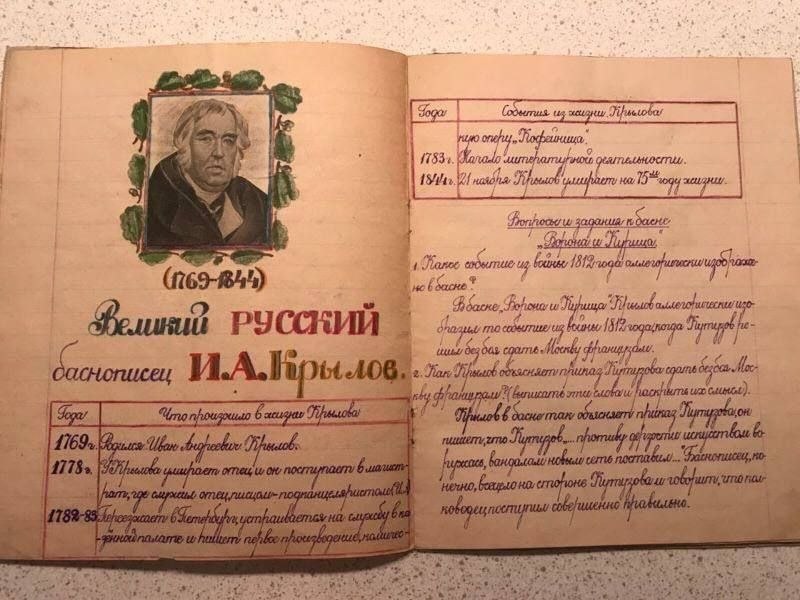 (1769-1844)
Великий РУССКИЙ
баснописец И.А.Крылов.
Года Что произошло в жизни Крылова
1769г. Родился Иван Андреевич Крылов.
1778г. У Крылова умирает отец, и он поступает в магист-
рат, где служил отец, писцом - подканцеляристом
1782-83 Переезжает в Петербург, устраивается на службу в ка-
зённой палате и пишет первое произведение, комичес-
Года События из жизни Крылова
кую оперу „Кофейница".
1783г. Начало литературной деятельности.
1844г. 21 ноября Крылов умирает на 75ом году жизни.
Вопросы и задания к басне
„Ворона и Курица".
1. Какое событие из войны 1812 года аллегорически изображе-
но в басне?
В басне „Ворона и Курица" Крылов аллегорически изо-
бразил то событие из войны 1812 года, когда Кутузов ре-
шил без боя сдать Москву французам.
2. Как Крылов объясняет приказ Кутузова сдать без боя Мос-
кву французам? (выписать эти слова и раскрыть их смысл).
Крылов в басне так объясняет приказ Кутузова, он
пишет, что Кутузов „... противу дерзости искусством во-
ружась, вандалам новым сеть поставил..." Баснописец, ко-
нечно, всецело на стороне Кутузова и говорит, что пол-
ководец поступил совершенно правильно.